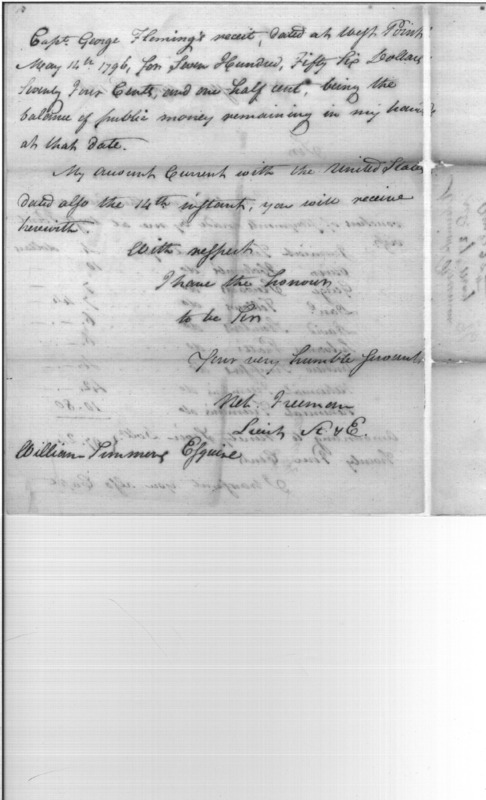 Capt. George Fleming's receit, dated at West Point
May 14th 1796, for Seven Hundred, Fifty Six Dollars
Seventy Four Cents, and one half cent, being the
balance of public money remaining in my hands
at that date.
My account Current with the United States
dated also the 14th instant, you will receive
herewith
With respect
I have the honour
to be Sir
Your very humble Servant
Net. Freeman
Lieut A & E
William Simmons Esquire